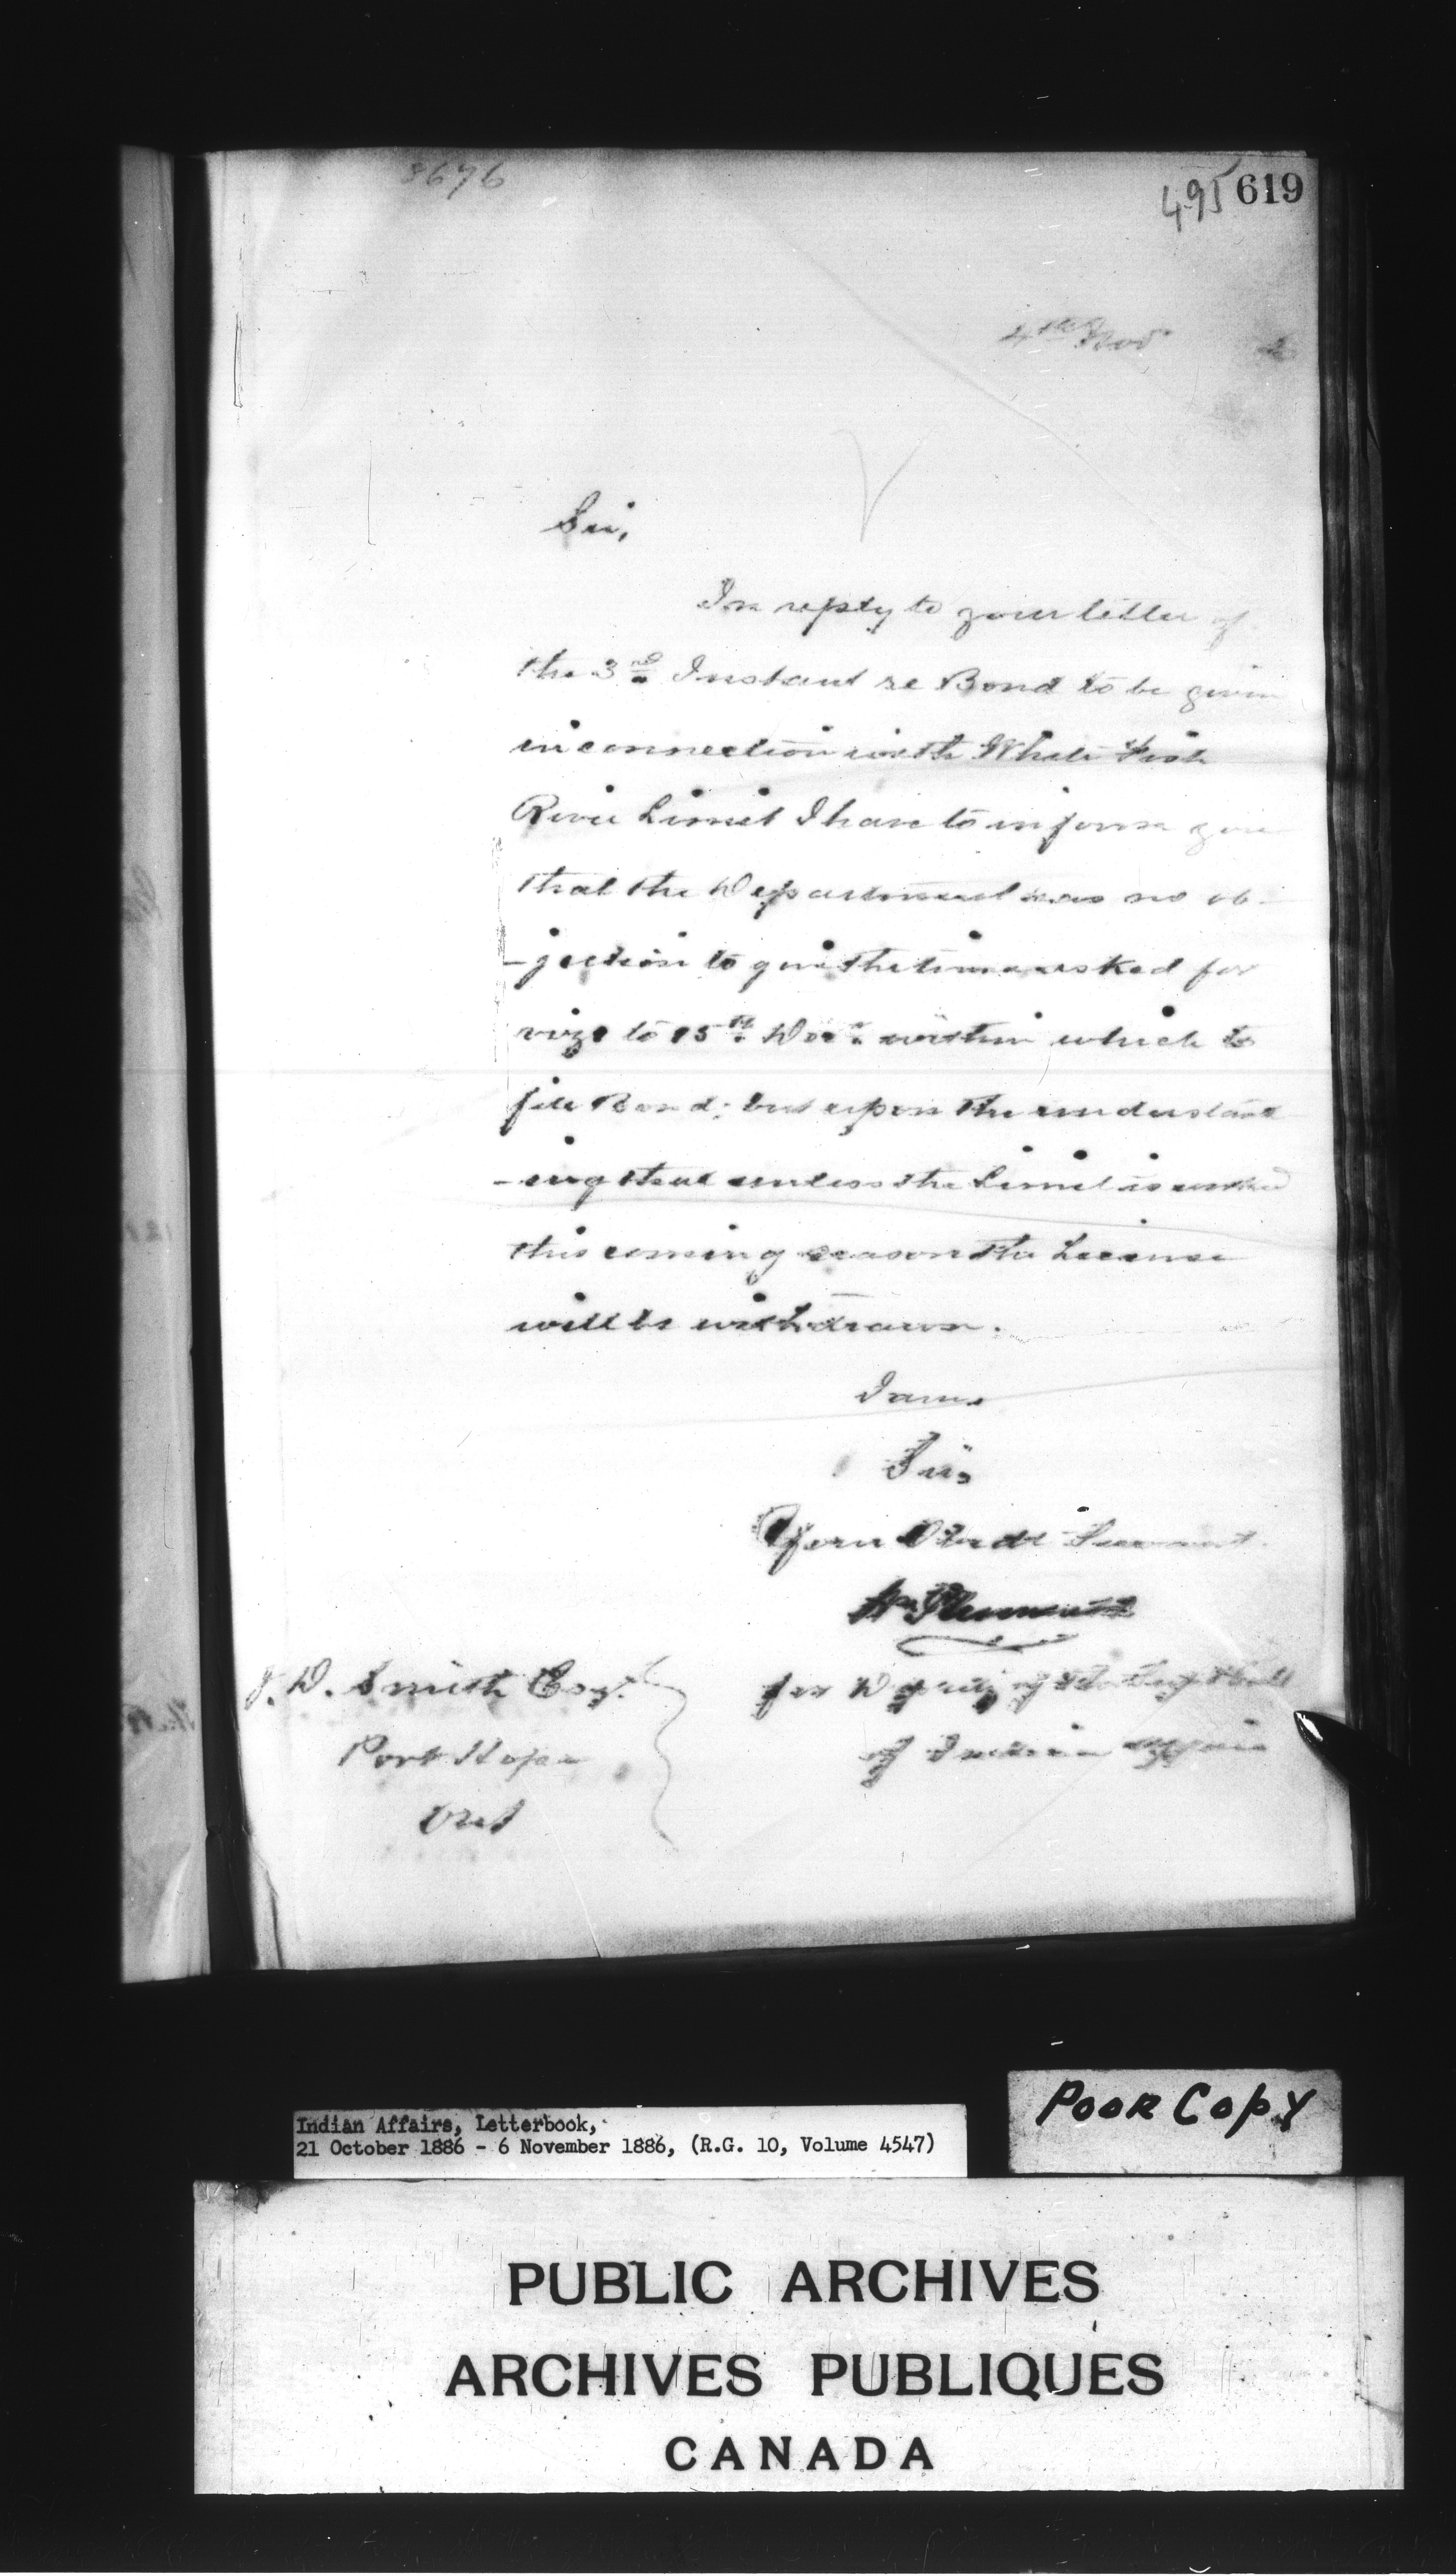 8676
495 619
4th Nov 6
Sir,
In reply to your letter of
the 3rd Instant re Bond to be given
in connection with White Fish
River Limit I have to inform you
that the Department has no ob-
-jection to give the time asked for
viz: to 15th Decr. within which to
file Bond; but upon the understand
-ing that unless the Limit is worked
this coming season the License
will be withdrawn.
I am,
Sir,
Your Obedt Servant.
Wm Plummer
J. D. Smith Esqr.
Port Hope
Ont
for Deputy of the Supt Genl
of Indian Affairs
Indian Affairs, Letterbook,
21 October 1886 - 6 November 1886, (R.G. 10, Volume 4547)
POOR COPY
PUBLIC ARCHIVES
ARCHIVES PUBLIQUES
CANADA